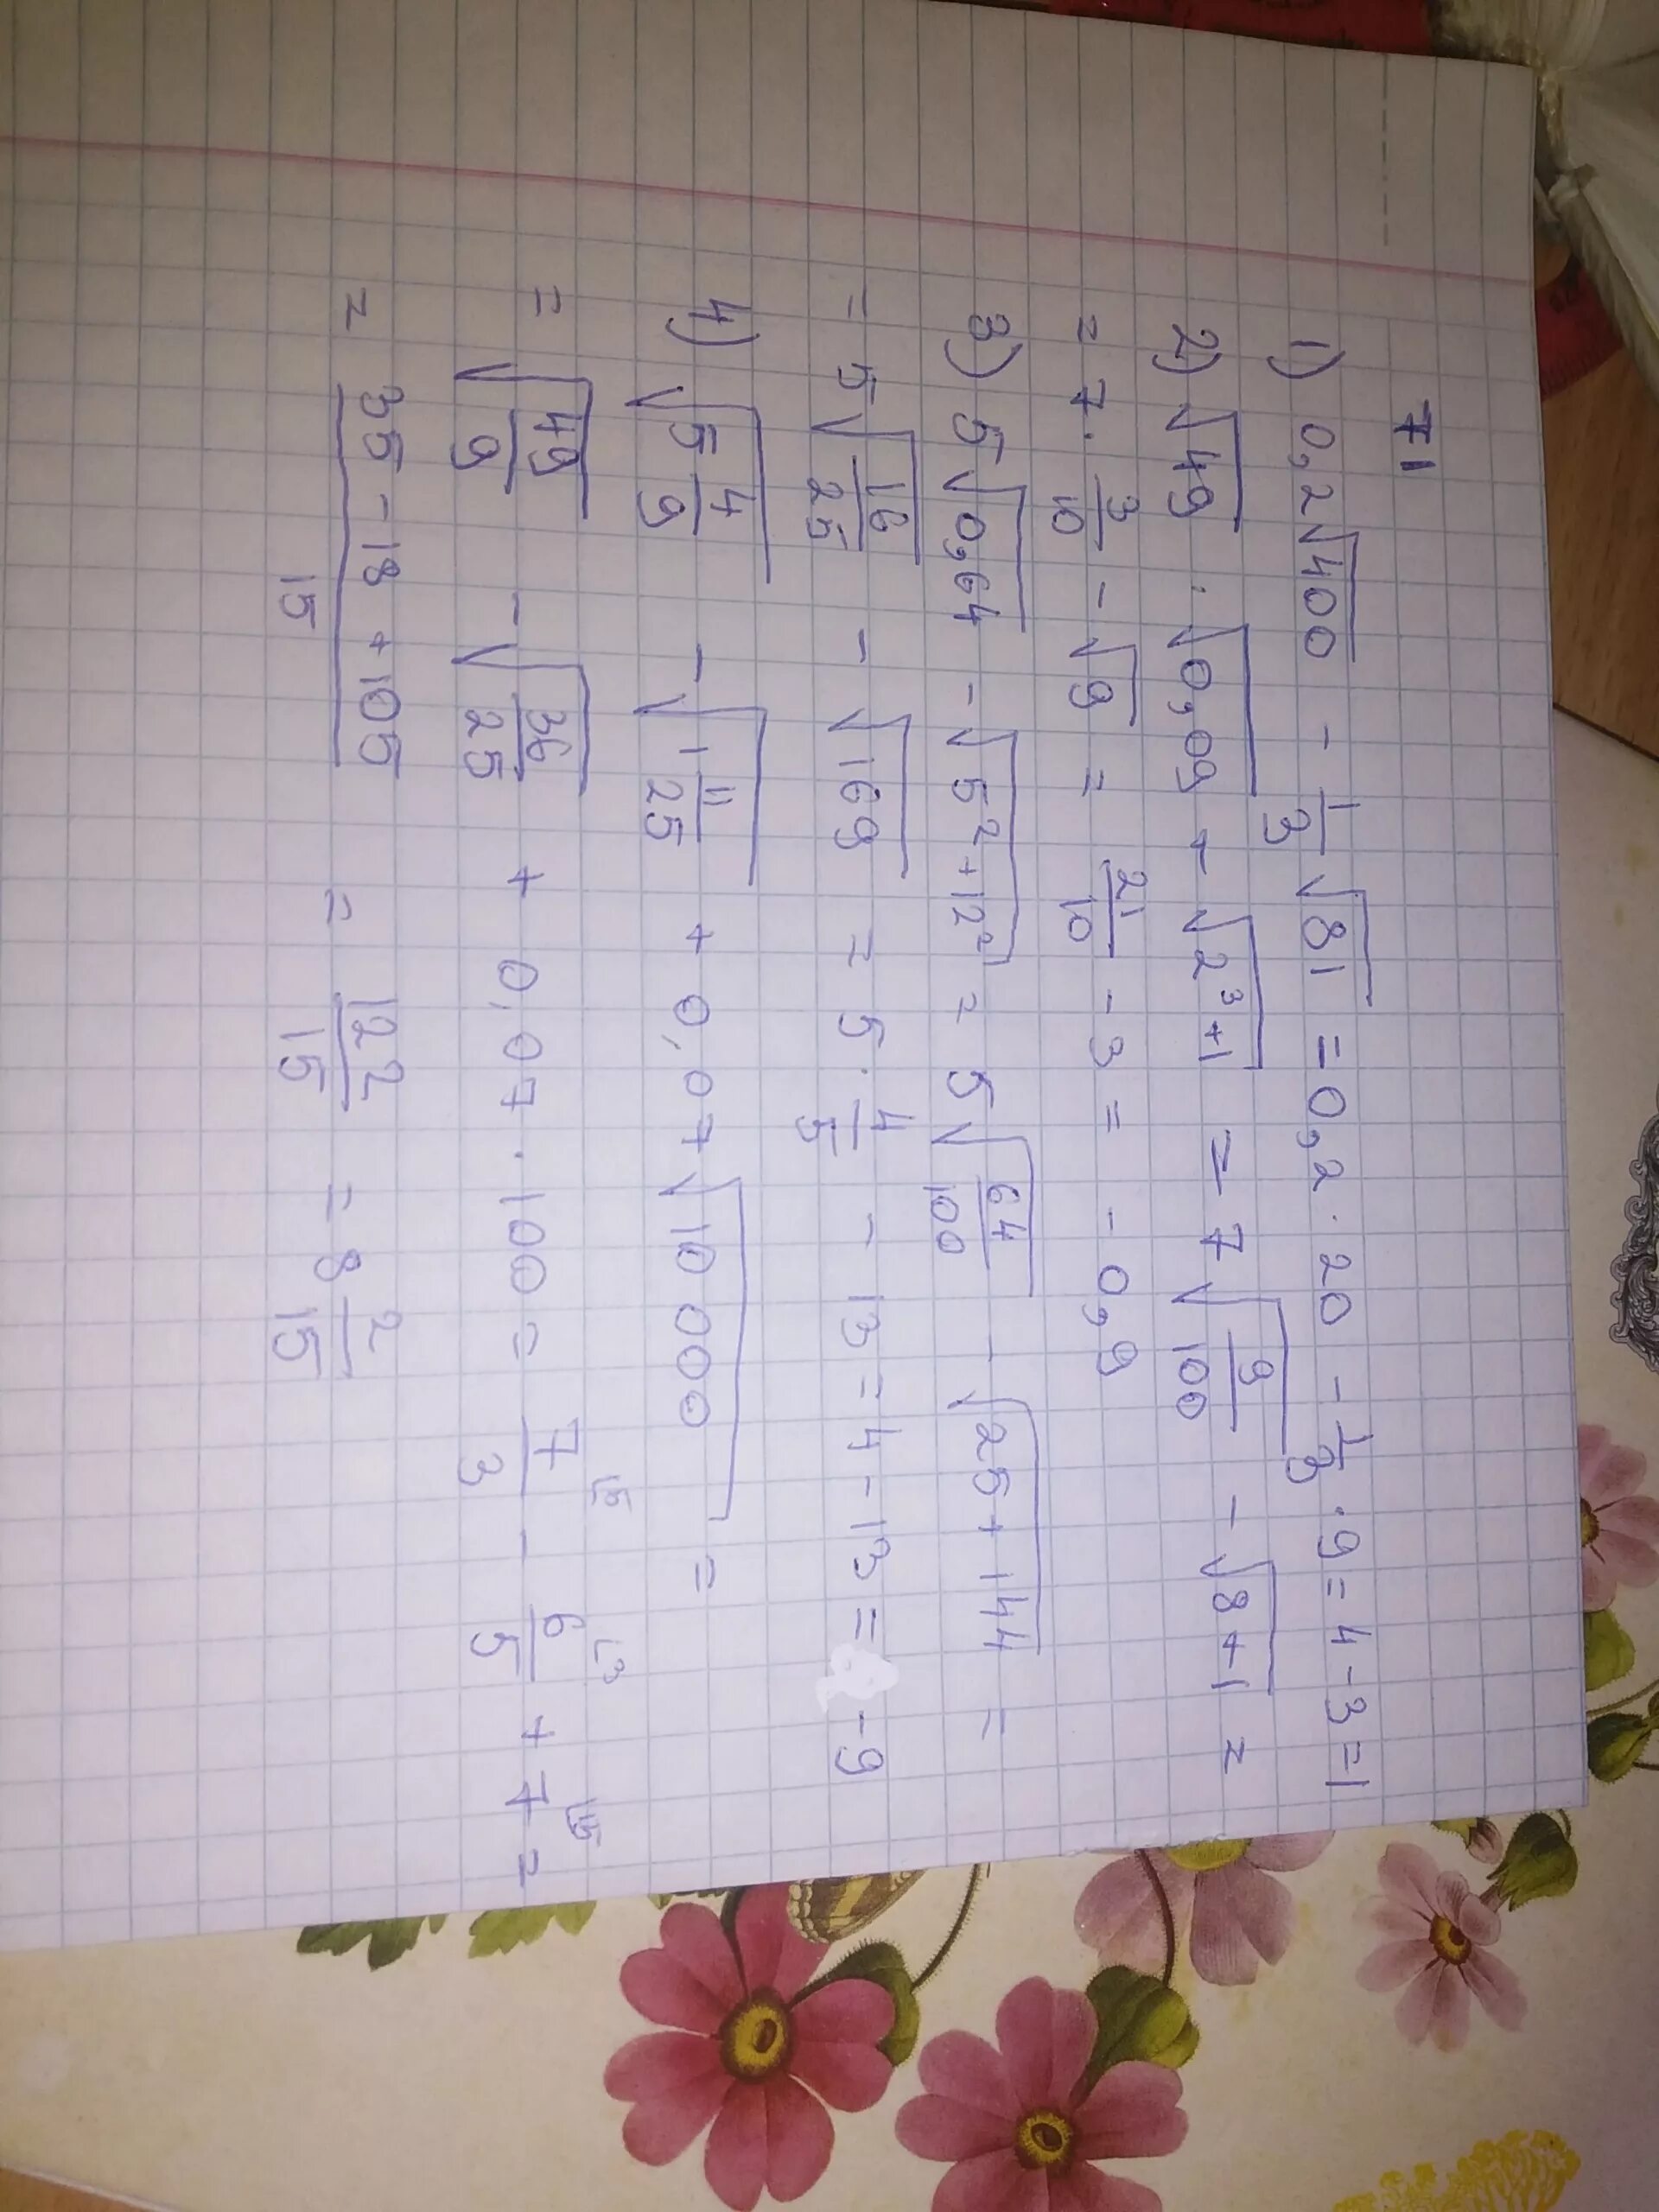 71
1) 0,2√400 - 1/3 √81 = 0,2 · 20 - 1/3 · 9 = 4 - 3 = 1
2) √49 · √0,09 + √(2³+1) = 7√(9/100) - √(8+1) =
= 7 · 3/10 - √9 = 21/10 - 3 = - 0,9
3) 5√0,64 - √(5²+12²) = 5√(64/100) - √(25+144) =
= 5√(16/25) - √169 = 5 · 4/5 - 13 = 4 - 13 = -9
4) √(5 4/9) - √(1 11/25) + 0,07√10 000 =
= √(49/9) - √(36/25) + 0,07 · 100 = 7/3 - 6/5 + 7 =
= (35 - 18 + 105)/15 = 122/15 = 8 2/15